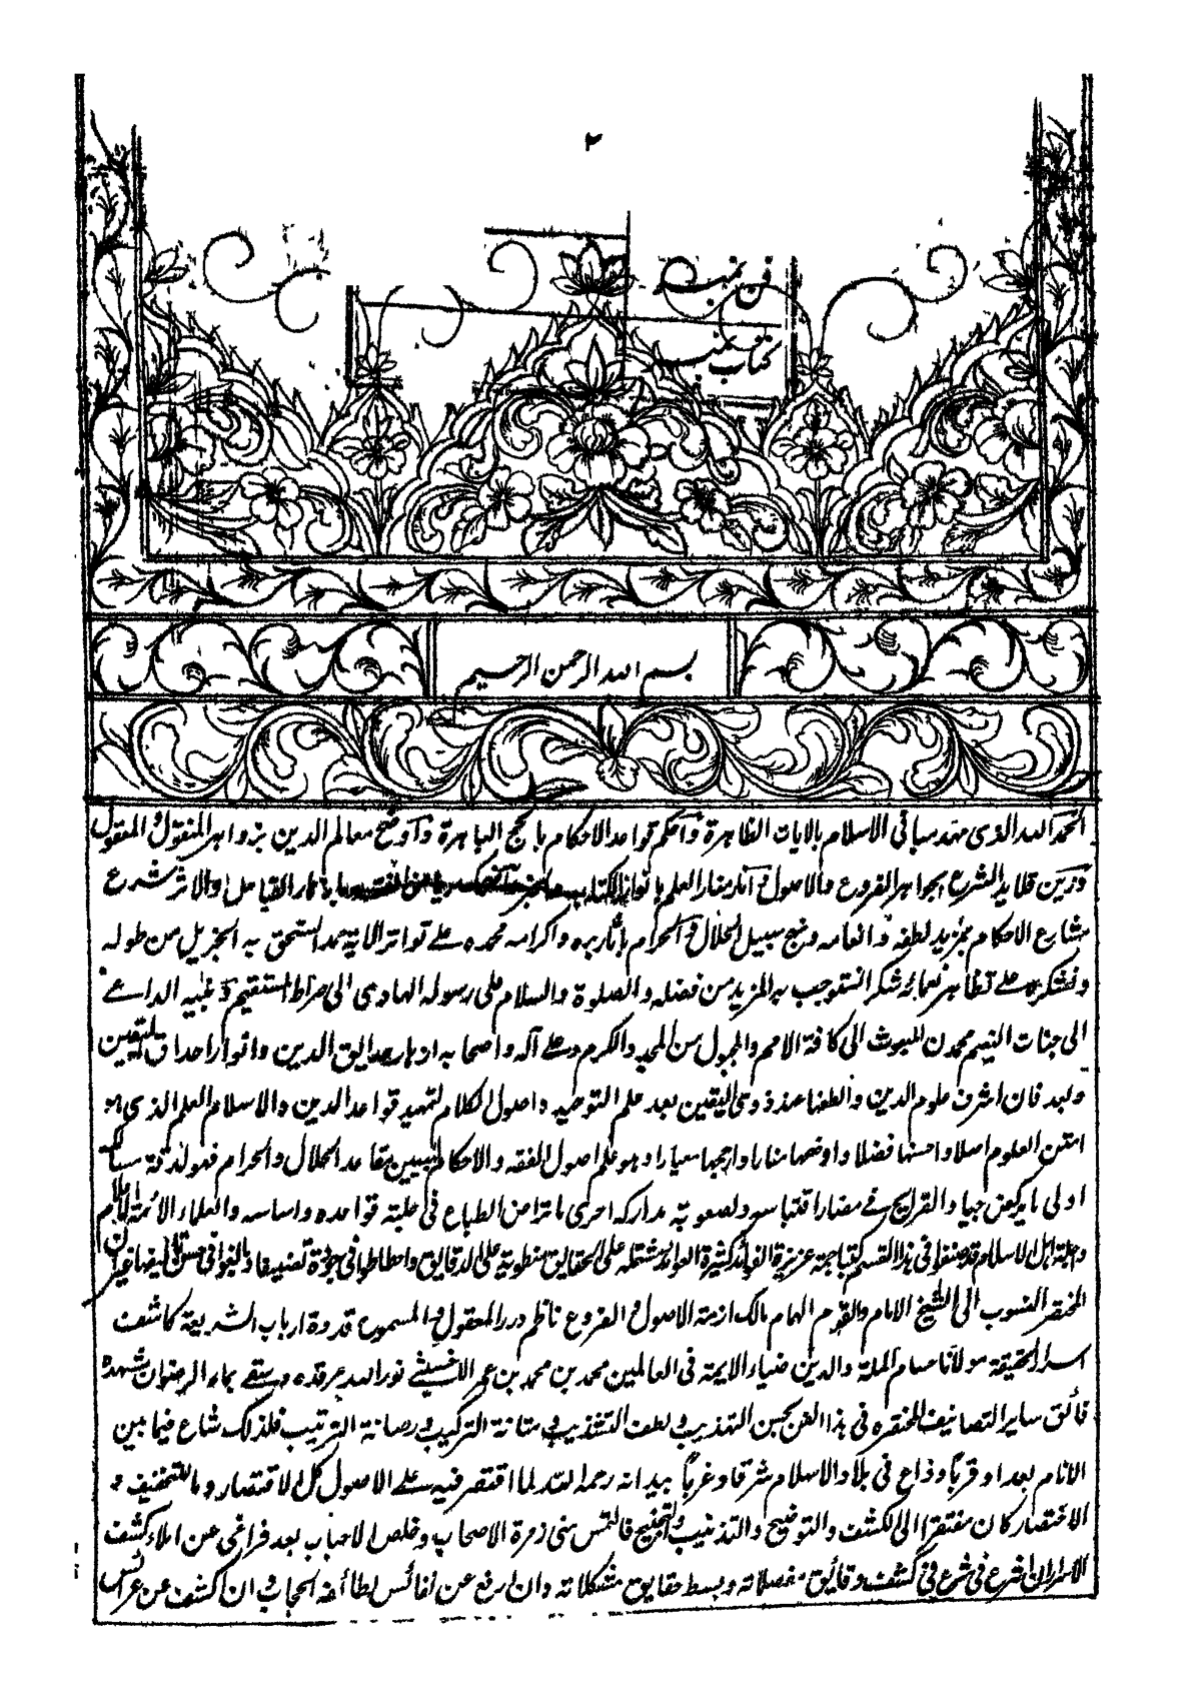 ٢
فن نمبر
كتاب نمبر
بسم الله الرحمن الرحيم
الحمد لله الذى مهد مبانى الاسلام بالايات الظاهرة واحكم قواعد الاحكام بالحجج الباهرة واوضح معالم الدين بزواهر المنقول والمعقول
وزين قلايد الشرع بجواهر الفروع والاصول وانار منار العلم بانوار الكتاب شرع
مشارع الاحكام بمزيد لطفه وانعامه ونهج سبيل الحلال والحرام ببره واكرامه نحمده على تواتر الايه حمد المستحق به الجزيل من طوله
ونشكره على تظاهر نعمائه شكر المستوجب به المزيد من فضله والصلوة والسلام على رسوله الهادى الى صراط المستقيم ونبيه الداعى
الى جنات النعيم محمد المبعوث الى كافة الامم والمجبول من المجد والكرم وعلى آله واصحابه ازهار حدايق الدين وانوار احداق المتقين
وبعد فان اشرف علوم الدين والطفها عند ذوى اليقين بعد علم التوحيد واصول الكلام لتمهيد قواعد الدين والاسلام العلم الذى هو
امتن العلوم اصلا واحسنها فضلا واوضحها منارا وارجحها معيارا وهو علم اصول الفقه والاحكام لتبيين مقاعد الحلال والحرام فهو لدقة مسالكه
اولى ما يركض جياد القرايح فى مضمار اقتباسه ولصعوبة مداركه احرى ما تراض الطباع فى حلبة قواعده واساسه والعلماء الائمة الاعلام
وجلة اهل الاسلام قد صنفوا فى هذا القسم كتبا جمة عزيزة الفوائد كثيرة العوائد مشتملة على الحقايق منطوية على الدقايق غير ان
المختصر المنسوب الى الشيخ الامام والقرم الهمام مالك ازمة الاصول والفروع ناظم درر المعقول والمسموع قدوة ارباب الشريعة كاشف
اسرار الحقيقة مولانا حسام الملة والدين ضياء الايمة فى العالمين محمد بن محمد بن عمر الاخسيكثى نور الله مرقده وسقى بماء الرضوان مشهده
فائق ساير التصانيف المختصرة فى هذا الفن بحسن التهذيب ولطف التشذيب ومتانة التركيب ورصانة الترتيب فلذلك شاع فيما بين
الانام بعدا وقربا وذاع فى بلاد الاسلام شرقا وغربا بيد انه رحمه الله لما اقتصر فيه على الاصول كل الاقتصار و
الاختصار كان مفتقرا الى الكشف والتوضيح والتذنيب والتنقيح فالتمس منى زمرة الاصحاب وخلص الاحباب بعد فراغى عن املاء كشف
الاسرار ان اشرع فى شرع فى كشف دقايق معضلاته وبسط حقايق مشكلاته وان ارفع عن نفائس لطائفه الحجاب وان اكشف عن عرائس